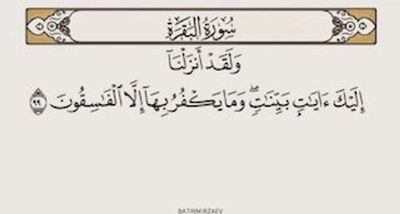 سُورَةُ البَقَرَةِ
وَلَقَدْ أَنزَلْنَآ
إِلَيْكَ ءَايَٰتٍۭ بَيِّنَٰتٍۖ وَمَا يَكْفُرُ بِهَآ إِلَّا ٱلْفَٰسِقُونَ ٩٩
BATIRMIRZAEV